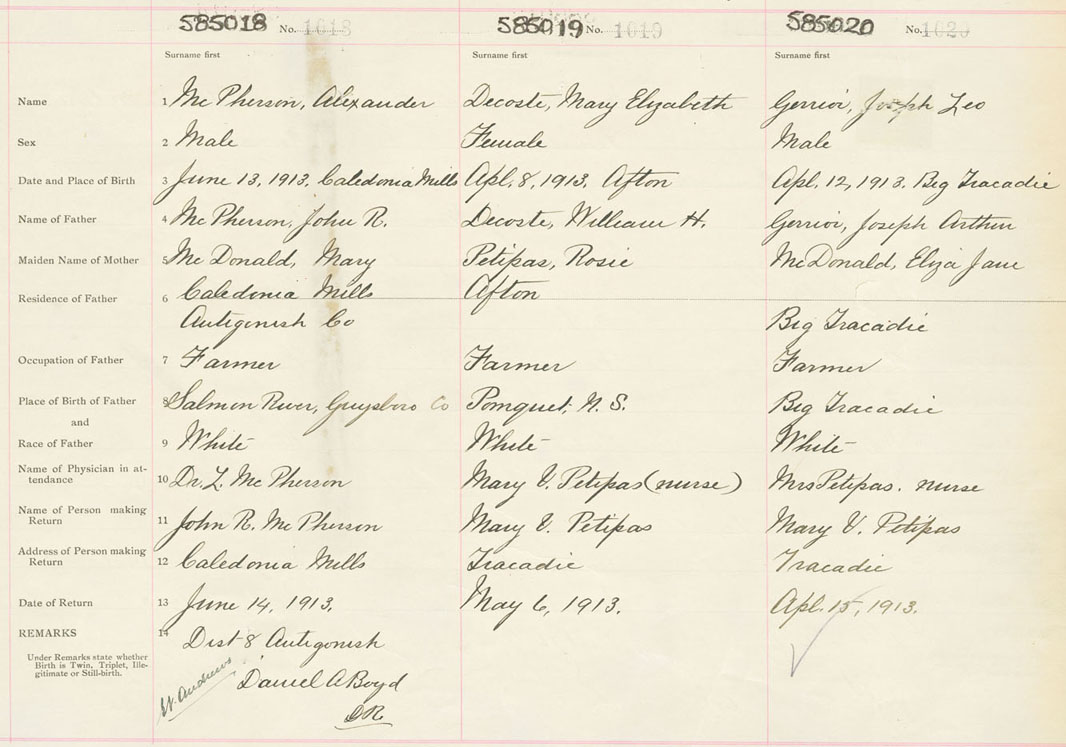 585018 No. 1618 585019 No. 1619 585020 No. 1620
Surname first Surname first Surname first
Name 1 McPherson, Alexander Decoste, Mary Elizabeth Gerrior, Joseph Leo
Sex 2 Male Female Male
Date and Place of Birth 3 June 13, 1913, Caledonia Mills Apl. 8, 1913, Afton Apl. 12, 1913. Big Tracadie
Name of Father 4 McPherson, John R. Decoste, William H. Gerrior, Joseph Arthur
Maiden Name of Mother 5 McDonald, Mary Petipas, Rosie McDonald, Eliza Jane
Residence of Father 6 Caledonia Mills Afton
Antigonish Co Big Tracadie
Occupation of Father 7 Farmer Farmer Farmer
Place of Birth of Father 8 Salmon River, Guysboro Co Pomquet, N. S. Big Tracadie
and
Race of Father 9 White White White
Name of Physician in at-
tendance 10 Dr. L. McPherson Mary V. Petipas (nurse) Mrs Petipas. nurse
Name of Person making
Return 11 John R. McPherson Mary V. Petipas Mary V. Petipas
Address of Person making
Return 12 Caledonia Mills Tracadie Tracadie
Date of Return 13 June 14, 1913. May 6, 1913. Apl. 15, 1913.
REMARKS 14 Dist 8 Antigonish
Under Remarks state whether
Birth is Twin, Triplet, Ille-
gitimate or Still-birth.
St. Andrews
Daniel A Boyd
DR